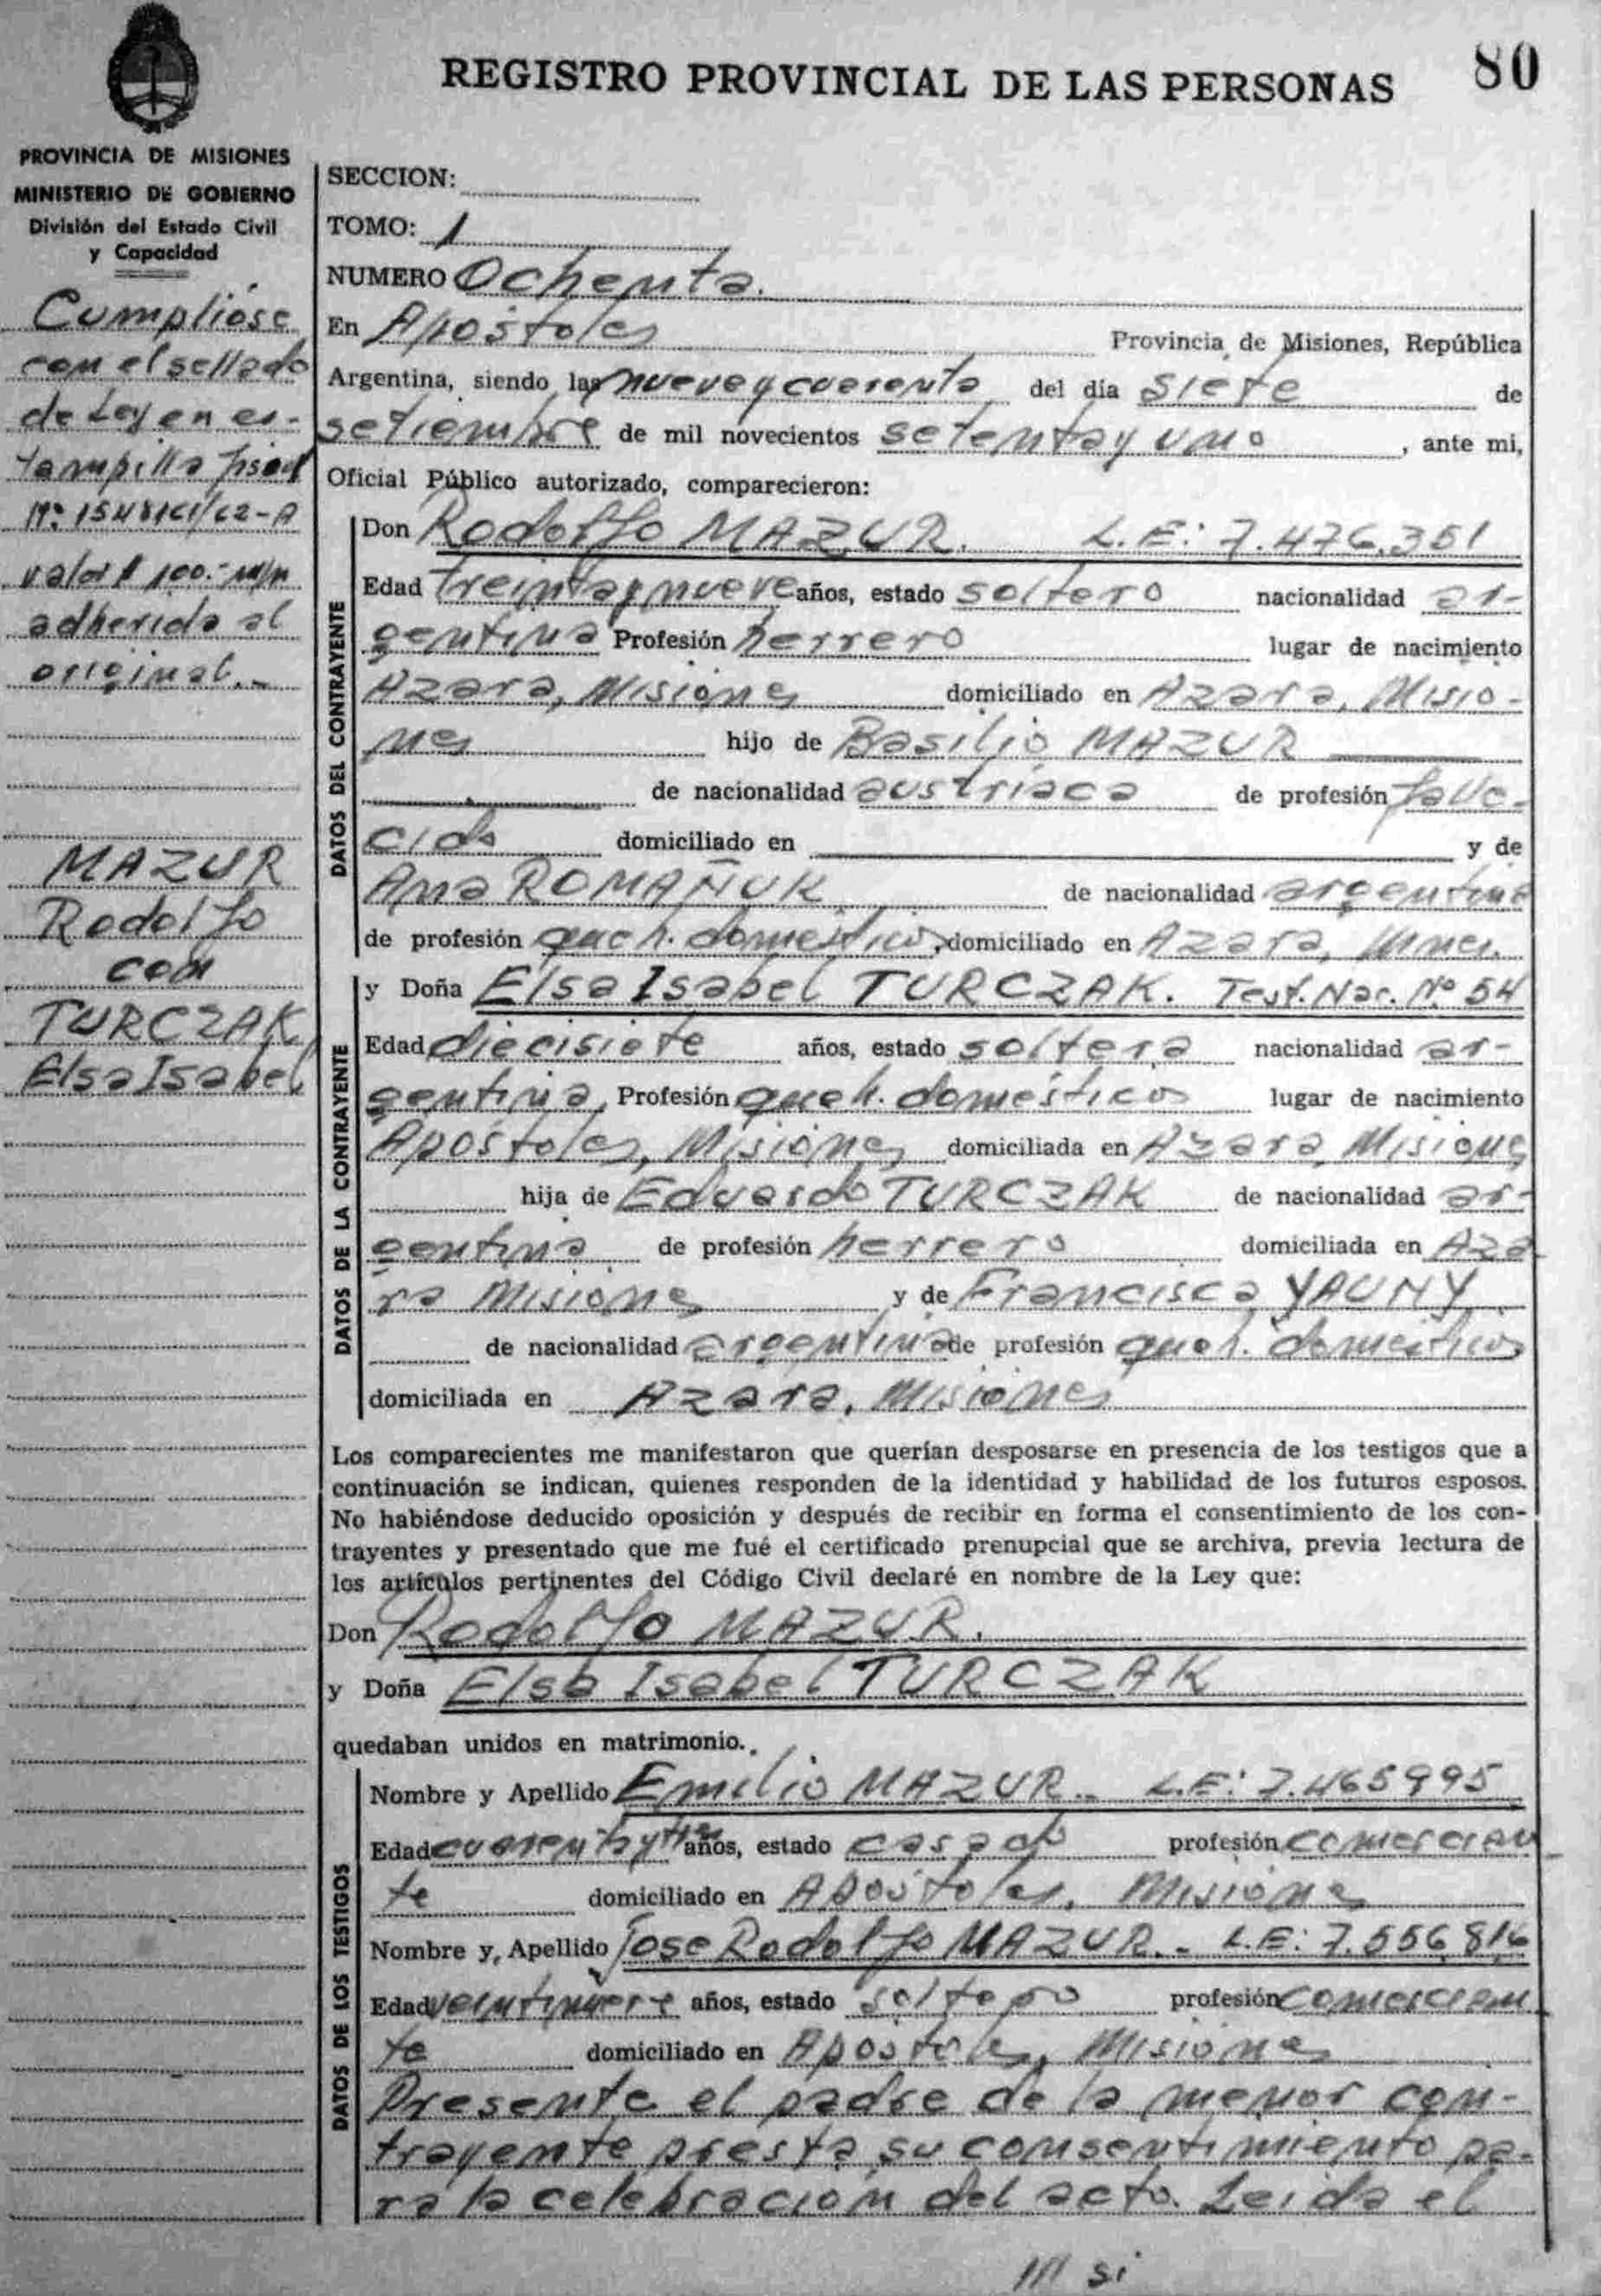 REGISTRO PROVINCIAL DE LAS PERSONAS
80
PROVINCIA DE MISIONES
MINISTERIO DE GOBIERNO
División del Estado Civil
y Capacidad
Cumplióse
con el sellado
de Ley en es-
tampilla fiscal
valor $ 100.- m/n
adherida al
original.-
MAZUR
Rodolfo
con
TURCZAK
Elsa Isabel
SECCION:
TOMO: 1
NUMERO Ochenta.
En Apóstoles Provincia de Misiones, República
Argentina, siendo las nueve y cuarenta del día siete de
setiembre de mil novecientos setenta y uno, ante mi,
Oficial Público autorizado, comparecieron:
DATOS DEL CONTRAYENTE
Don Rodolfo MAZUR. L.E: 7.476.351
Edad treinta y nueve años, estado soltero nacionalidad ar-
gentina Profesión herrero lugar de nacimiento
Azara, Misiones domiciliado en Azara, Misio-
nes hijo de Basilio MAZUR
de nacionalidad austríaca de profesión falle-
cido domiciliado en y de
Ana ROMAÑUK de nacionalidad argentina
de profesión queh. domésticos, domiciliado en Azara, Mnes.
DATOS DE LA CONTRAYENTE
y Doña Elsa Isabel TURCZAK. Test. Nac. Nº 54
Edad diecisiete años, estado soltera nacionalidad ar-
gentina, Profesión queh. domésticos lugar de nacimiento
Apóstoles, Misiones domiciliada en Azara, Misiones
hija de Eduardo TURCZAK de nacionalidad ar-
gentina de profesión herrero domiciliada en Aza
ra Misiones y de Francisca YAUNY
de nacionalidad argentina de profesión queh. domésticos
domiciliada en Azara, Misiones
Los comparecientes me manifestaron que querían desposarse en presencia de los testigos que a
continuación se indican, quienes responden de la identidad y habilidad de los futuros esposos.
No habiéndose deducido oposición y después de recibir en forma el consentimiento de los con-
trayentes y presentado que me fué el certificado prenupcial que se archiva, previa lectura de
los artículos pertinentes del Código Civil declaré en nombre de la Ley que:
Don Rodolfo MAZUR.
y Doña Elsa Isabel TURCZAK
quedaban unidos en matrimonio.
DATOS DE LOS TESTIGOS
Nombre y Apellido Emilio MAZUR.- L.E: 7.465995
Edad cuarenta y tres años, estado casado profesión comercian
te domiciliado en Apóstoles, Misiones
Nombre y, Apellido Jose Rodolfo MAZUR.- L.E: 7.556.816
Edad veintinueve años, estado soltero profesión comercian
te domiciliado en Apóstoles, Misiones
Presente el padre de la menor con-
trayente presta su consentimiento pa-
ra la celebración del acto. Leida el